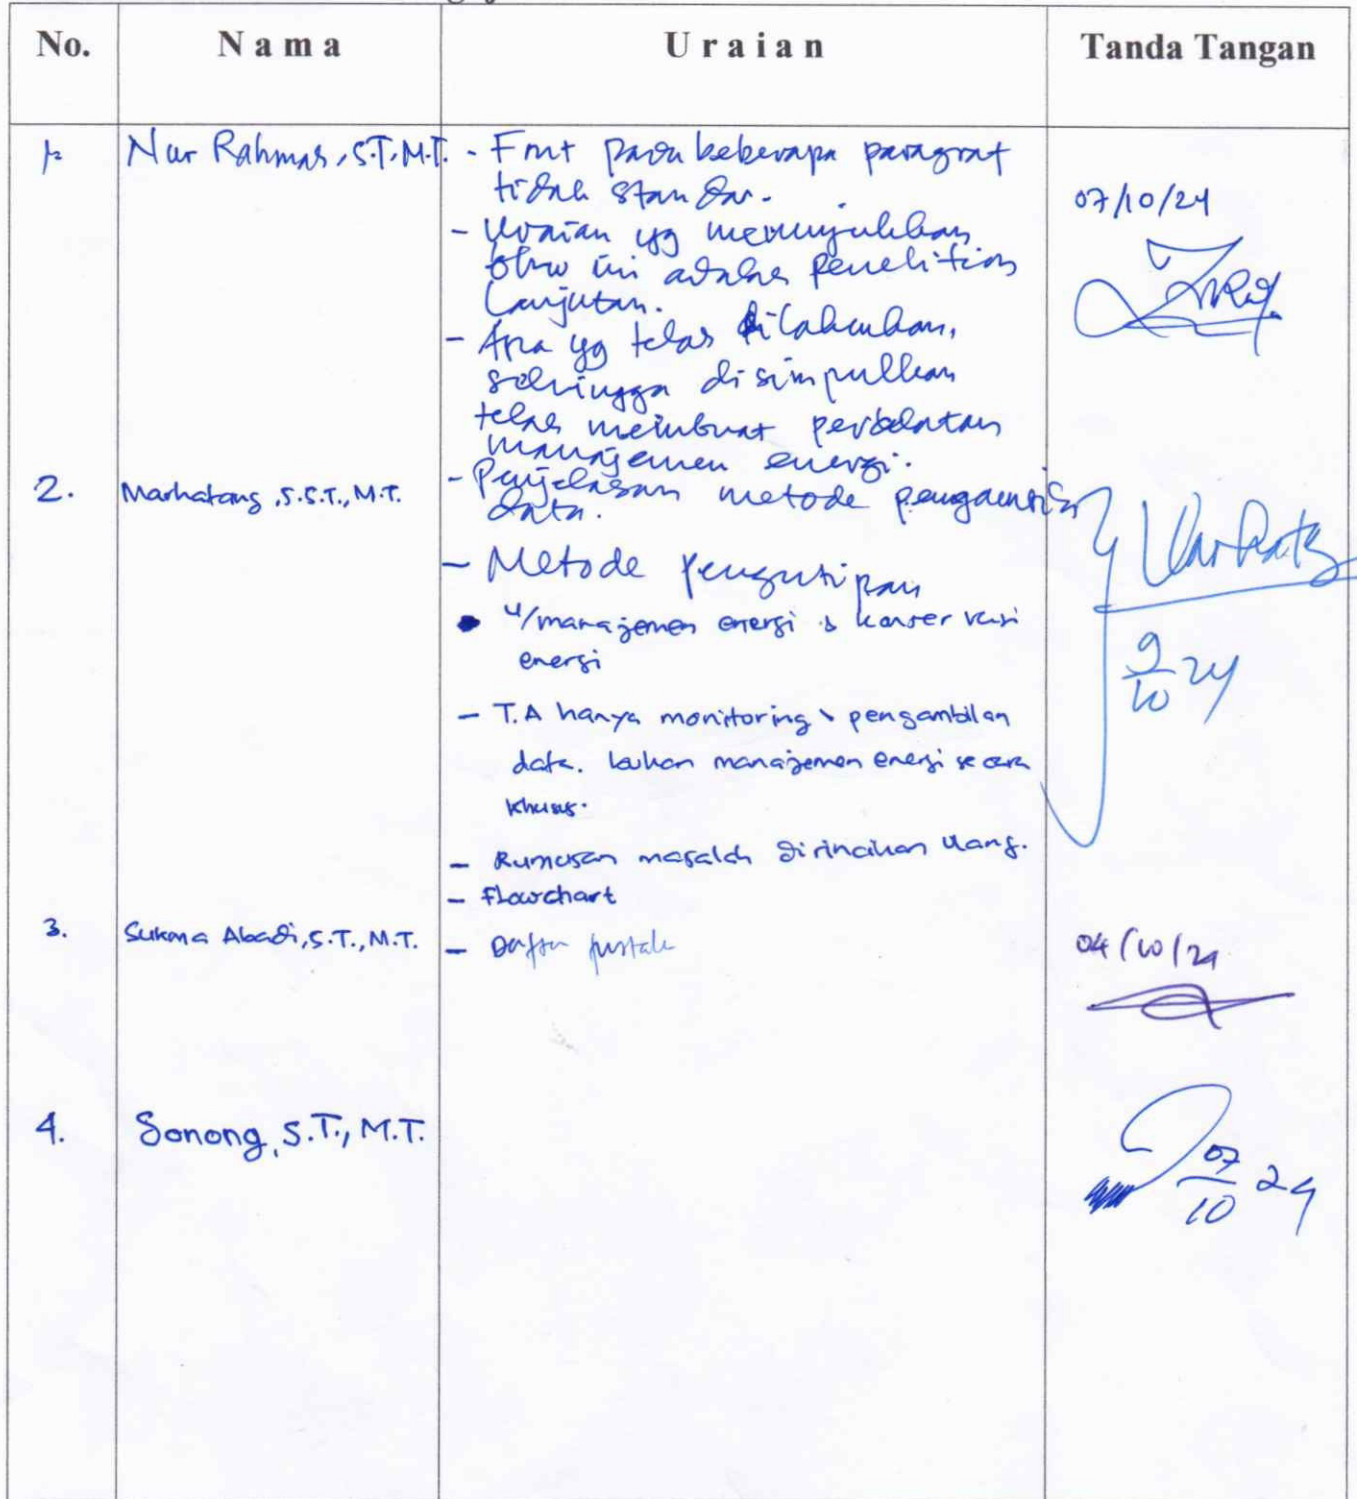 No. Nama Uraian Tanda Tangan
1. Nur Rahmah, S.T, M.T. - Font pada beberapa paragraf
tidak standar.
07/10/24
- Uraian yg menunjukkan
bhw ini adalah penelitian
lanjutan.
- Apa yg telah dilakukan,
sehingga disimpulkan
telah membuat peralatan
manajemen energi.
2. Marhatang, S.S.T., M.T. - Penjelasan metode pengambilan
data.
- Metode pengutipan
Marhatang
4/manajemen energi & konservasi
energi
9/10 24
- T.A hanya monitoring & pengambilan
data. bukan manajemen energi secara
khusus.
- Rumusan masalah dirincikan ulang.
- Flowchart
3. Sukma Abadi, S.T., M.T. - Daftar pustaka
04/10/24
4. Sonong, S.T., M.T.
07/10 24